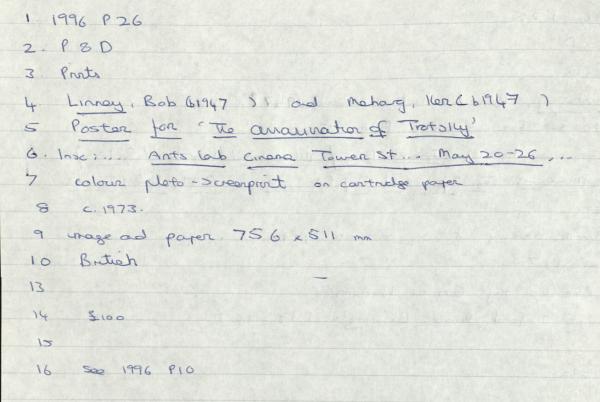 1 1996 P 26
2. P & D
3 Prints
4 Linney, Bob (b1947 ); and Meharg, Ken (b1947 )
5 Poster for 'The assassination of Trotsky'
6. Insc: .... Arts Lab Cinema Tower St ... May 20-26, ...
7 colour photo-screenprint on cartridge paper
8 c. 1973.
9 image and paper 756 x 511 mm
10 British
13
14 £100
15
16 see 1996 P10